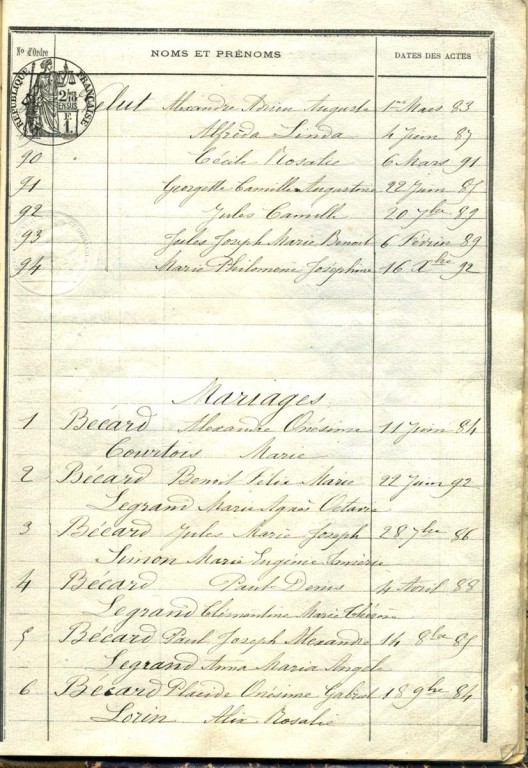 N° d'Ordre NOMS ET PRÉNOMS DATES DES ACTES
RÉPUBLIQUE FRANÇAISE
Alexandre Adrien Auguste 1er Mars 83
Alfréda Linda 4 Juin 87
90 Cécile Rosalie 6 Mars 91
91 Georgette Camille Augustine 22 Juin 85
92 Jules Camille 20 7bre 89
93 Jules Joseph Marie Benoit 6 Février 89
94 Marie Philomène Joséphine 16 Xbre 92
Mariages
1 Bécard Alexandre Onésime 11 Juin 84
Courtois Marie
2 Bécard Benoit Félix Marie 22 Juin 92
Legrand Marie Agnès Octavie
3 Bécard Jules Marie Joseph 28 7bre 86
Simon Marie Eugénie
4 Bécard Paul Denis 4 Avril 88
Legrand Clémentine Marie
5 Bécard Paul Joseph Alexandre 14 8bre 85
Legrand Anna Maria Angèle
6 Bécard Placide Onésime Gabriel 18 9bre 84
Lorin Alix Rosalie